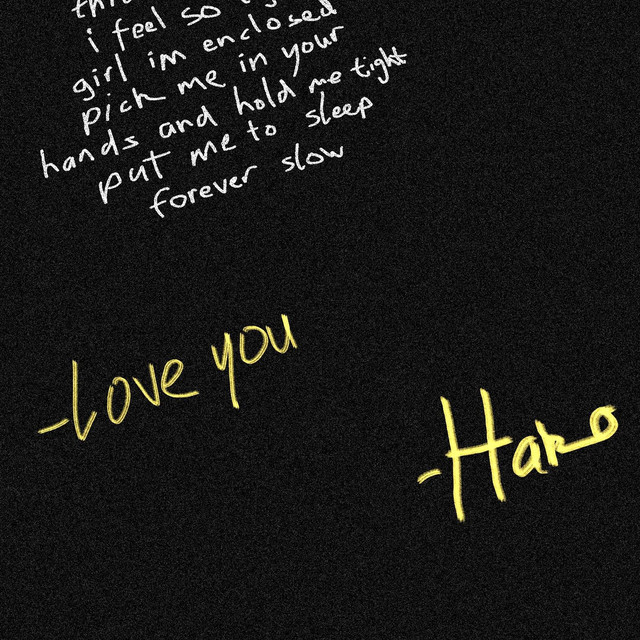 i feel so
girl im enclosed
pick me in your
hands and hold me tight
put me to sleep
forever slow
-Love you
-Hako